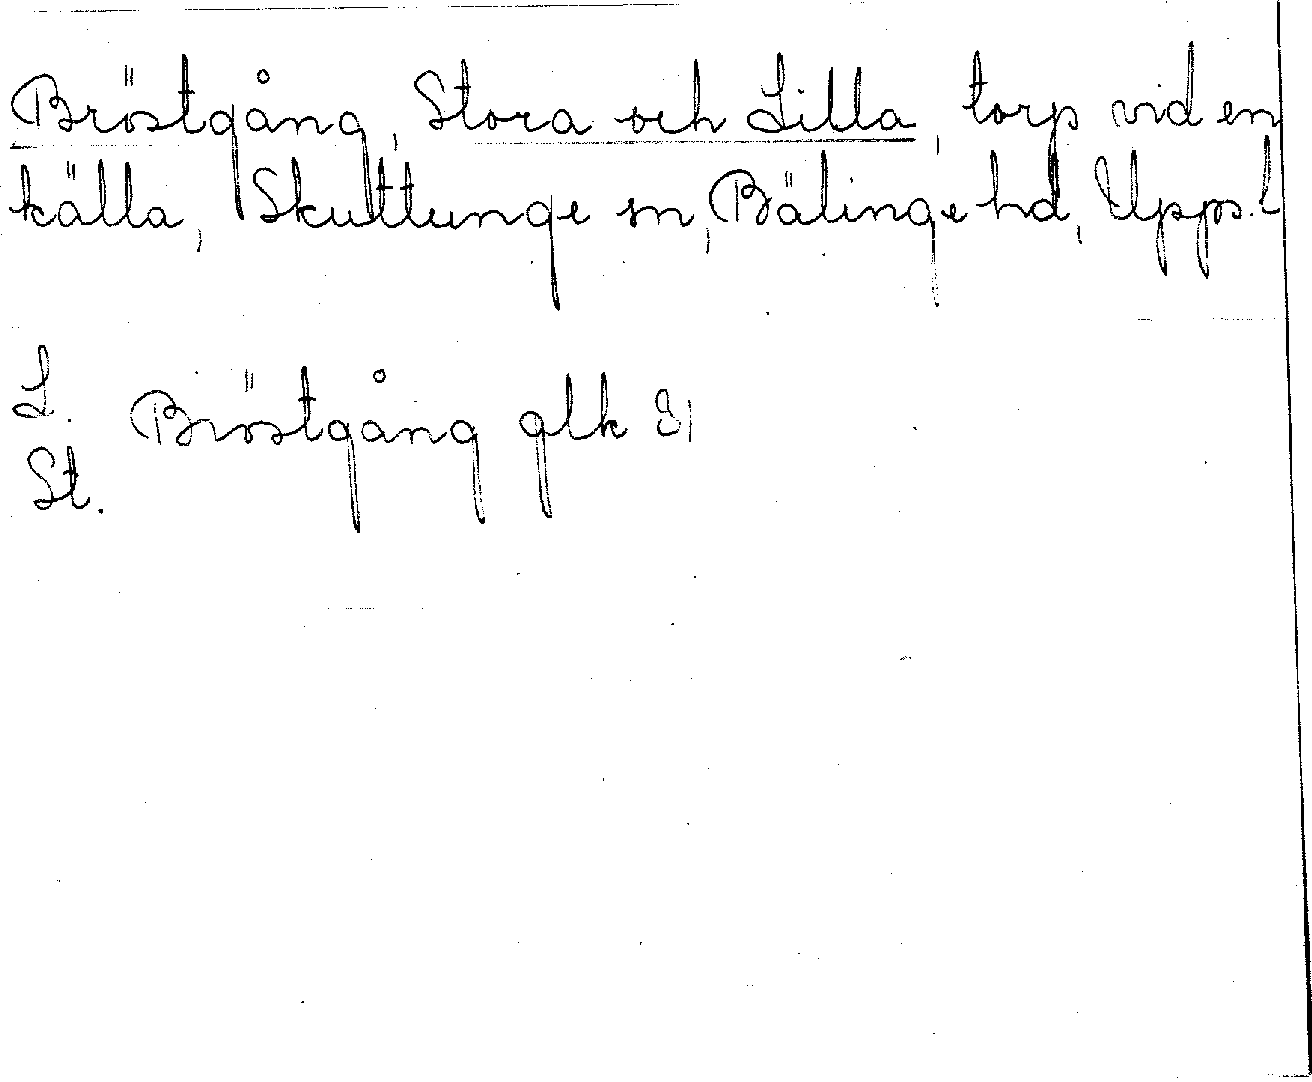 Bröstgång, Stora och Lilla, torp vid en
källa, Skuttunge sn, Bälinge hd, Upps. l
L.
Bröstgång glk 81
St.